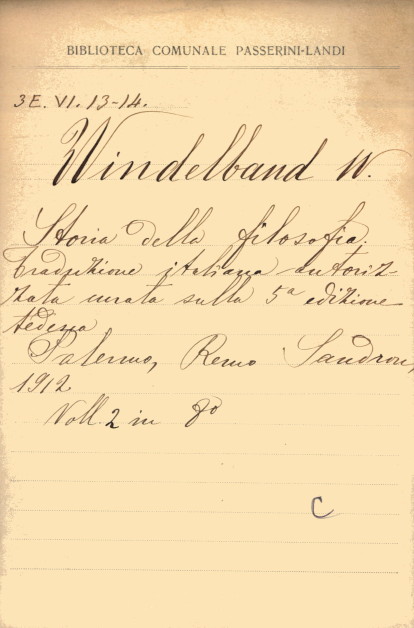 BIBLIOTECA COMUNALE PASSERINI-LANDI
3E. VI. 13-14.
Windelband W.
Storia della filosofia.
Traduzione italiana autoriz-
zata curata sulla 5ª edizione
tedesca
Palermo, Remo Sandron,
1912
Voll. 2 in 8º
C